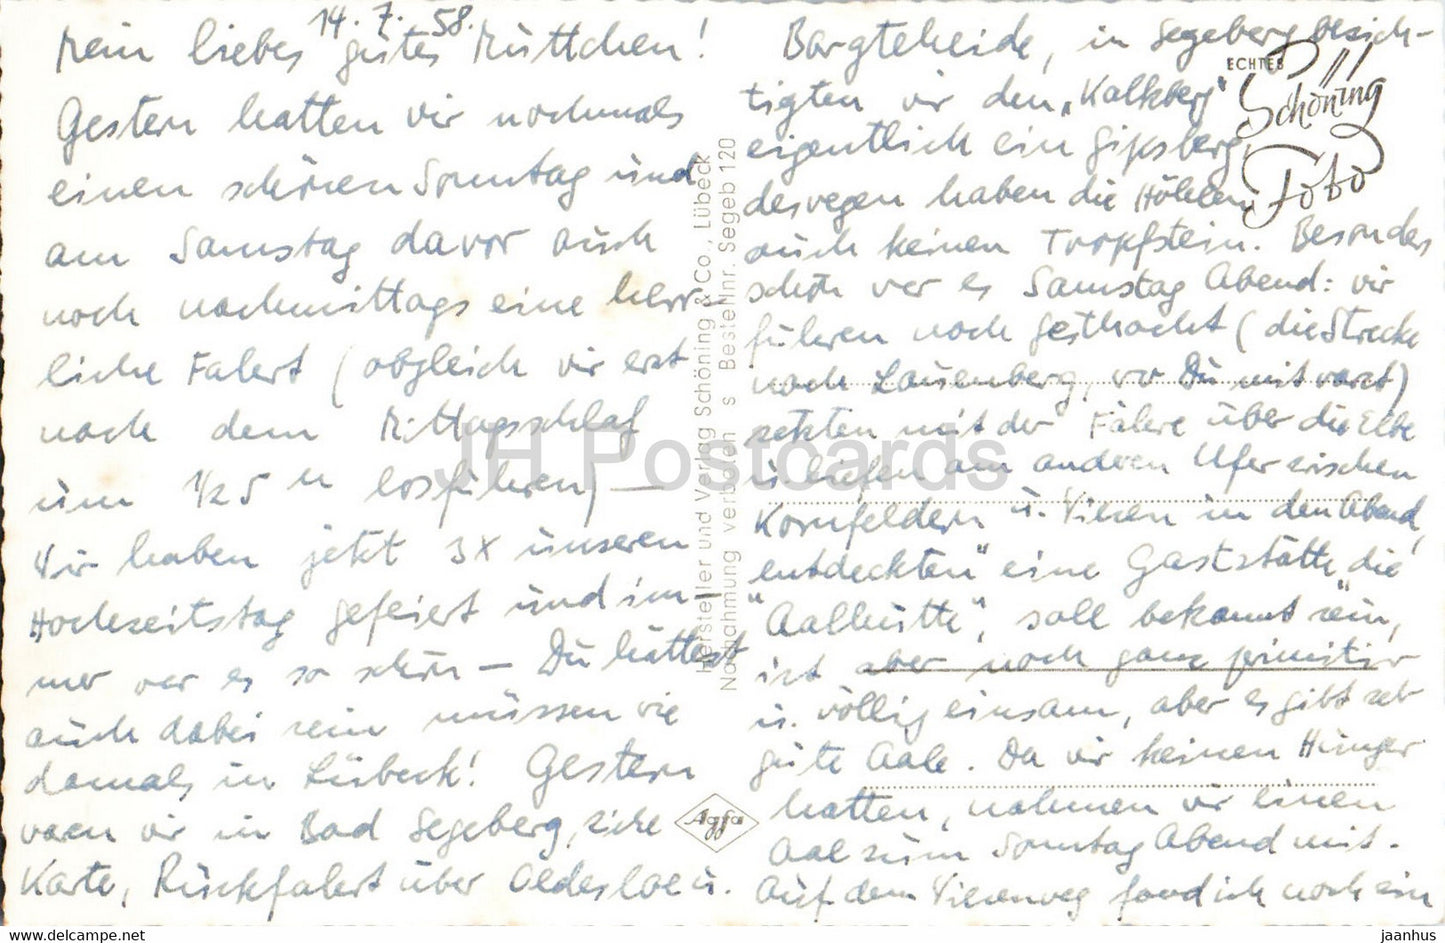 14. 7. 58.
Mein liebes gutes Muttchen!
Gestern hatten wir nochmals
einen schönen Sonntag und
am Samstag davor auch
noch nachmittags eine herr-
liche Fahrt (obgleich wir erst
nach dem Mittagsschlaf
um 1/2 5 u losfuhren) —
Wir haben jetzt 3x unseren
Hochzeitstag gefeiert und im
mer war es so schön — Du hättest
auch dabei sein müssen wie
damals in Lübeck! Gestern
waren wir in Bad Segeberg, siehe
Karte, Rückfahrt über Oldesloe u.
Bargteheide, in Segeberg besich-
tigten wir den „Kalkberg"
eigentlich ein Gipsberg,
deswegen haben die Höhlen
auch keinen Tropfstein. Besonders
schön war es Samstag Abend: wir
fuhren nach Gesthacht (die Strecke
nach Lauenberg, wo Du mit warst)
setzten mit der Fähre über die Elbe
u. liefen am andren Ufer zwischen
Kornfeldern u. Wiesen in den Abend,
"entdeckten" eine Gaststätte, die
"Aalhütte", soll bekannt sein,
ist aber noch ganz primitiv
u. völlig einsam, aber es gibt sehr
gute Aale. Da wir keinen Hunger
hatten, nahmen wir einen
Aal zum Sonntag Abend mit.
Auf dem Wiesenweg fand ich noch ein
ECHTES
Schöning
Foto
Hersteller und Verlag Schöning & Co., Lübeck
Nachahmung verboten s Bestellnr. Segeb 120
Agfa
JH Postcards
www.delcampe.net
jaanhus